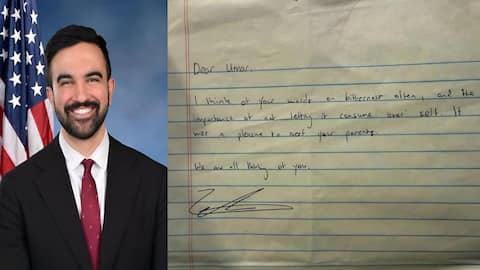 Dear Umar,
I think of your words on bitterness often, and the
importance of not letting it consume over self. It
was a pleasure to meet your parents.
We are all thinking of you.